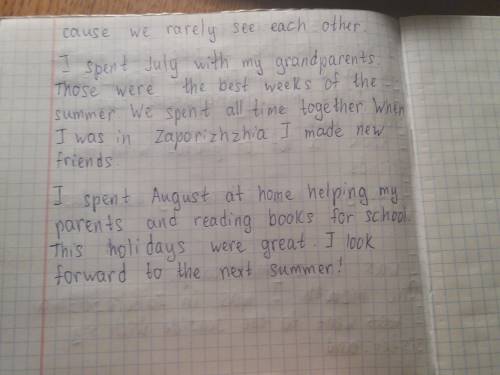 cause we rarely see each other.
I spent July with my grandparents.
Those were the best weeks of the
summer. We spent all time together. When
I was in Zaporizhzhia I made new
friends.
I spent August at home helping my
parents and reading books for school.
This holidays were great. I look
forward to the next summer!